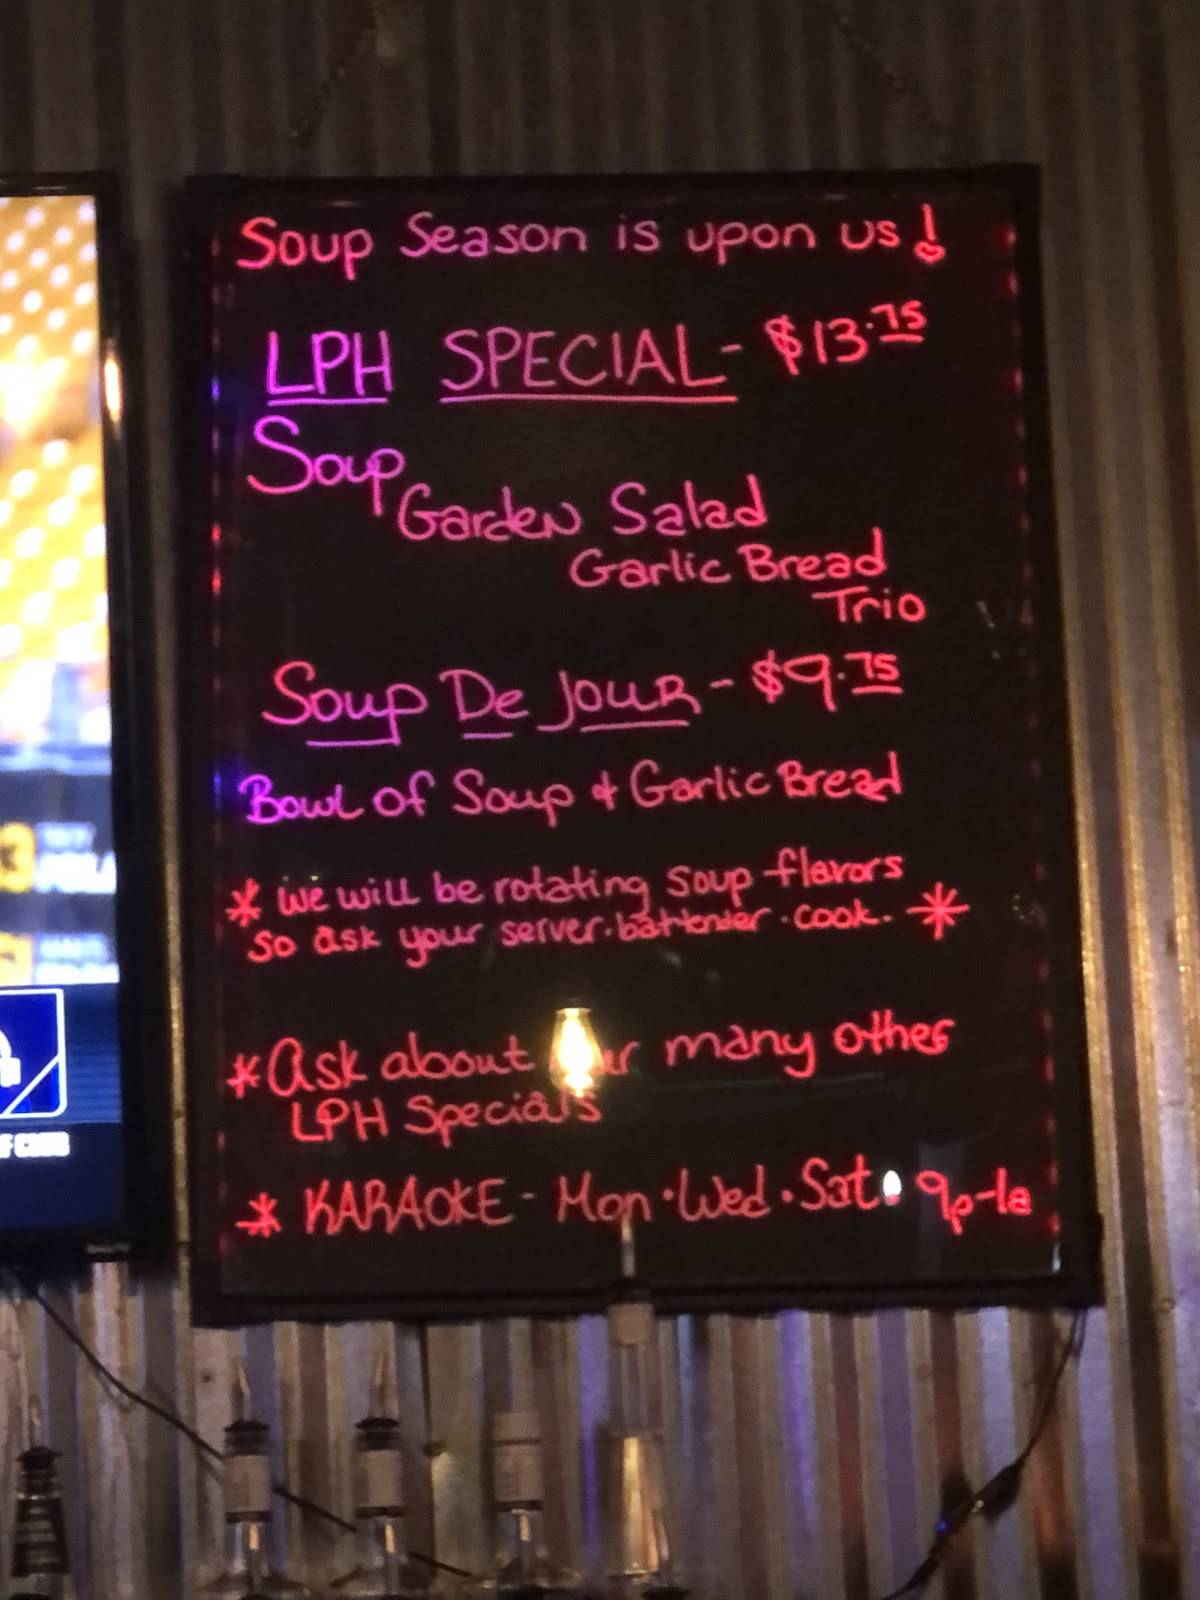 Soup Season is upon us!
LPH SPECIAL - $13.75
Soup
Garden Salad
Garlic Bread
Trio
Soup De Jour - $9.75
Bowl of Soup & Garlic Bread
* we will be rotating soup flavors
so ask your server.bartender.cook. *
* Ask about our many other
LPH Specials
* KARAOKE - Mon.Wed.Sat. 9p-1a